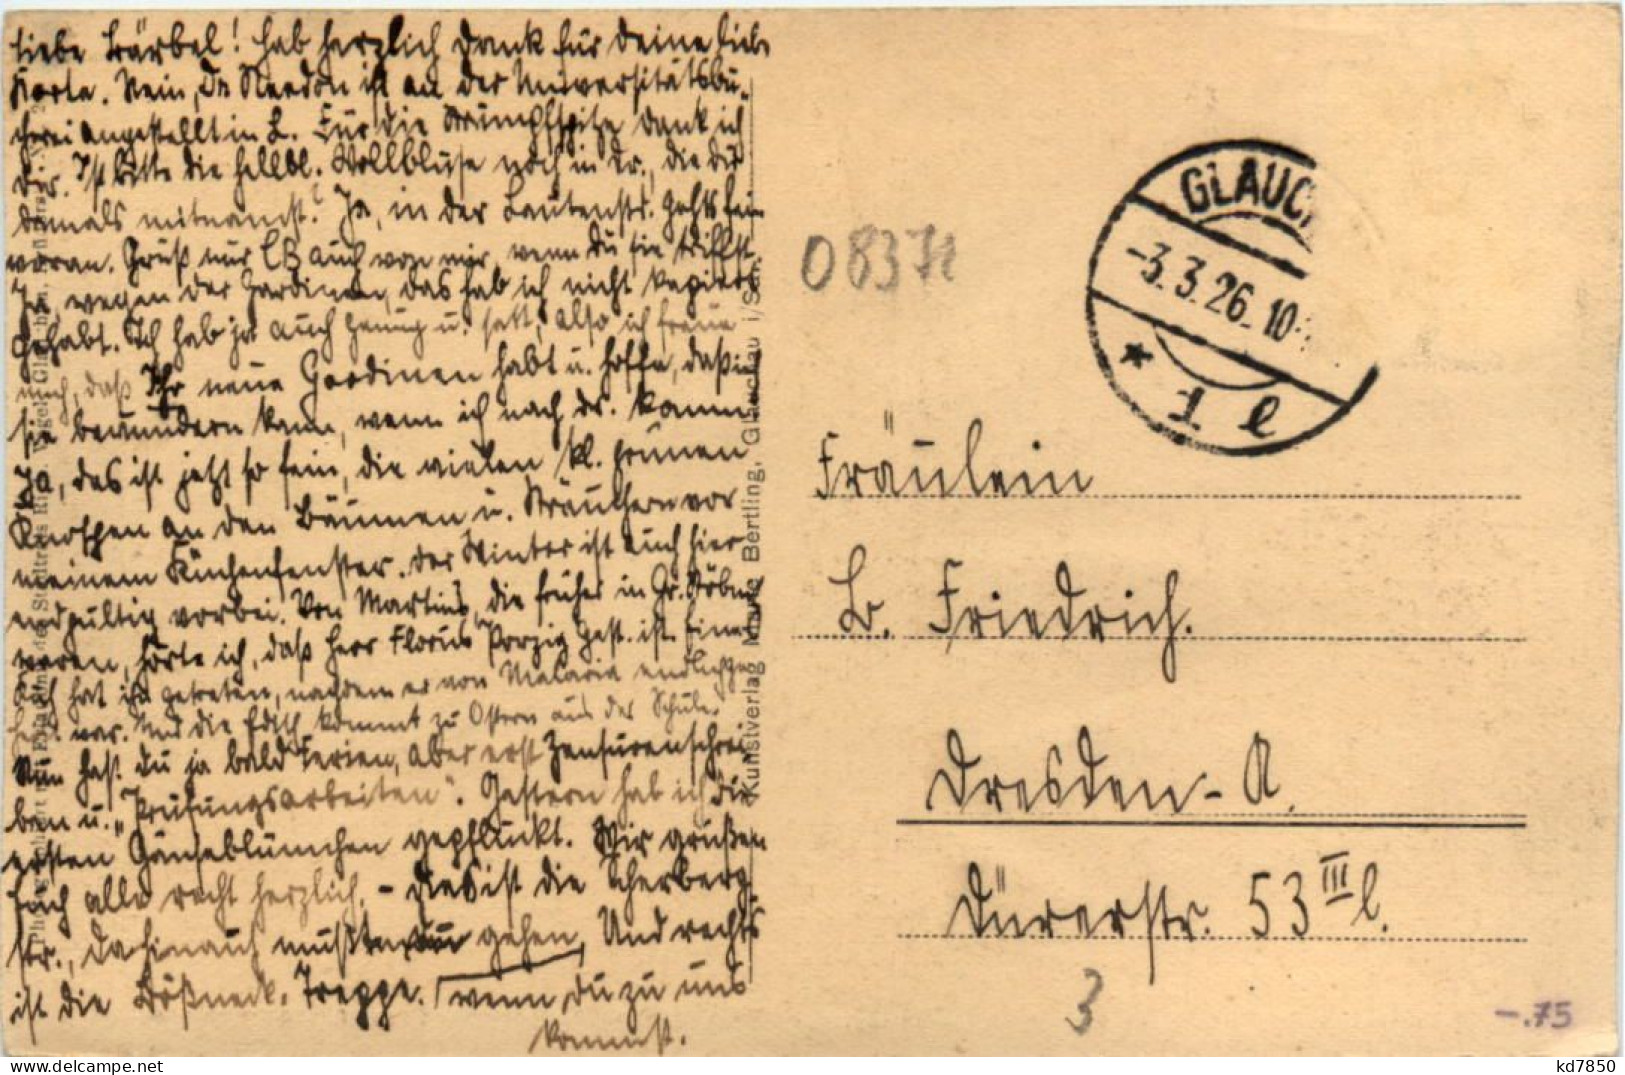 Liebe Bärbel! Hab herzlich Dank für Deine liebe
Karte. Nein, Dr. Needon ist an der Universitätsbü-
cherei angestellt in L. Für die Strumpfspitze dank ich
Dir. Ist bitte die hellbl. Wollbluse noch in Dr., die Du
damals mitnahmst? Ja, in der Lautenstr. gehts fein
voran. Grüß nur LB auch von mir, wenn Du sie triffst.
Ja, wegen der Gardinen, das hab ich nicht kapiert
gehabt. Ich hab ja auch genug u. satt, also ich freue
mich, daß Ihr neue Gardinen habt u. hoffe, daß ich
sie bewundern kann, wenn ich nach Dr. komme.
Ja, das ist jetzt so fein, die vielen kl. grünen
Knospen an den Bäumen u. Sträuchern vor
meinem Küchenfenster. Der Winter ist auch hier
endgültig vorbei. Von Martins, die früher in Gr. Röbn.
waren, hörte ich, daß Herr Florus Porzig gest. ist. Eine
hat ihn getreten, nachdem er von Malaria endlich
war. Und die Edith kommt zu Ostern aus der Schule.
Nun hast Du ja bald Ferien, aber erst Zensurenschrei-
ben u. „Prüfungsarbeiten". Gestern hab ich die
ersten Gänseblümchen gepflückt. Wir grüßen
Euch alle recht herzlich. – Dies ist die Scherberg-
str., da hinauf mußten gehen, Und rechts
ist die Bößneck-Treppe. wenn Du zu uns
kommst.
Kunstverlag Bertling, Glauchau i/Sa.
GLAUC
-3.3.26. 10-
* 1 l
08371
Fräulein
B. Friedrich.
Dresden-A.
Dürerstr. 53 III l.
3
-.75
kd7850